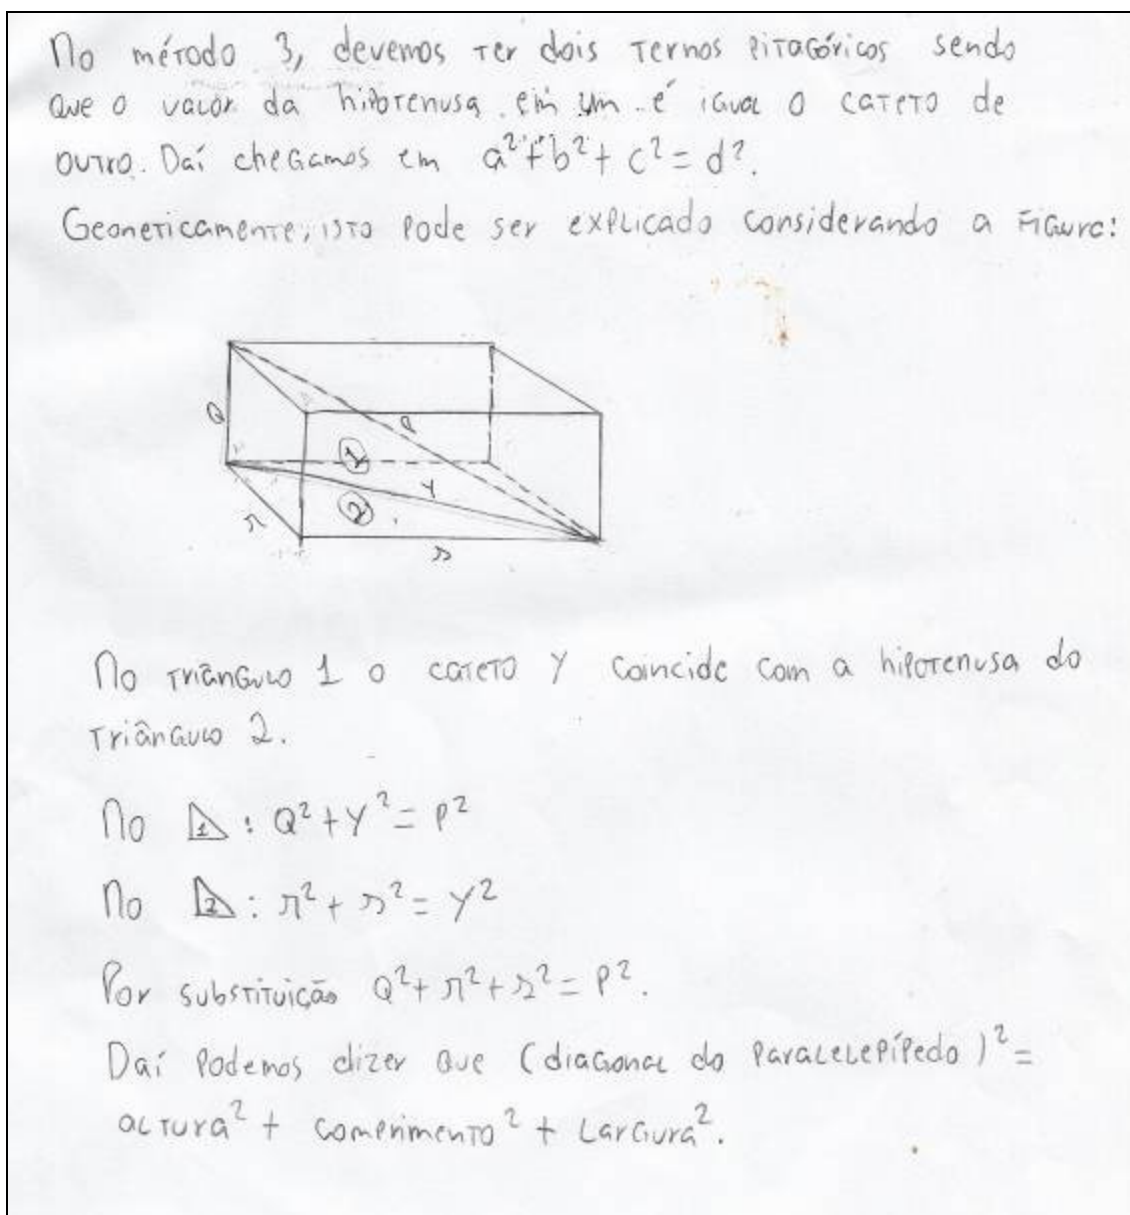 No método 3, devemos ter dois ternos pitagóricos sendo
que o valor da hipotenusa em um é igual o cateto de
outro. Daí chegamos em a² + b² + c² = d².
Geometricamente, isto pode ser explicado considerando a figura:
Q
P
1
Y
2
r
s
No triângulo 1 o cateto Y coincide com a hipotenusa do
triângulo 2.
No 1: Q² + Y² = P²
No 2: r² + s² = Y²
Por substituição Q² + r² + s² = P².
Daí podemos dizer que (diagonal do paralelepípedo)² =
altura² + comprimento² + largura².